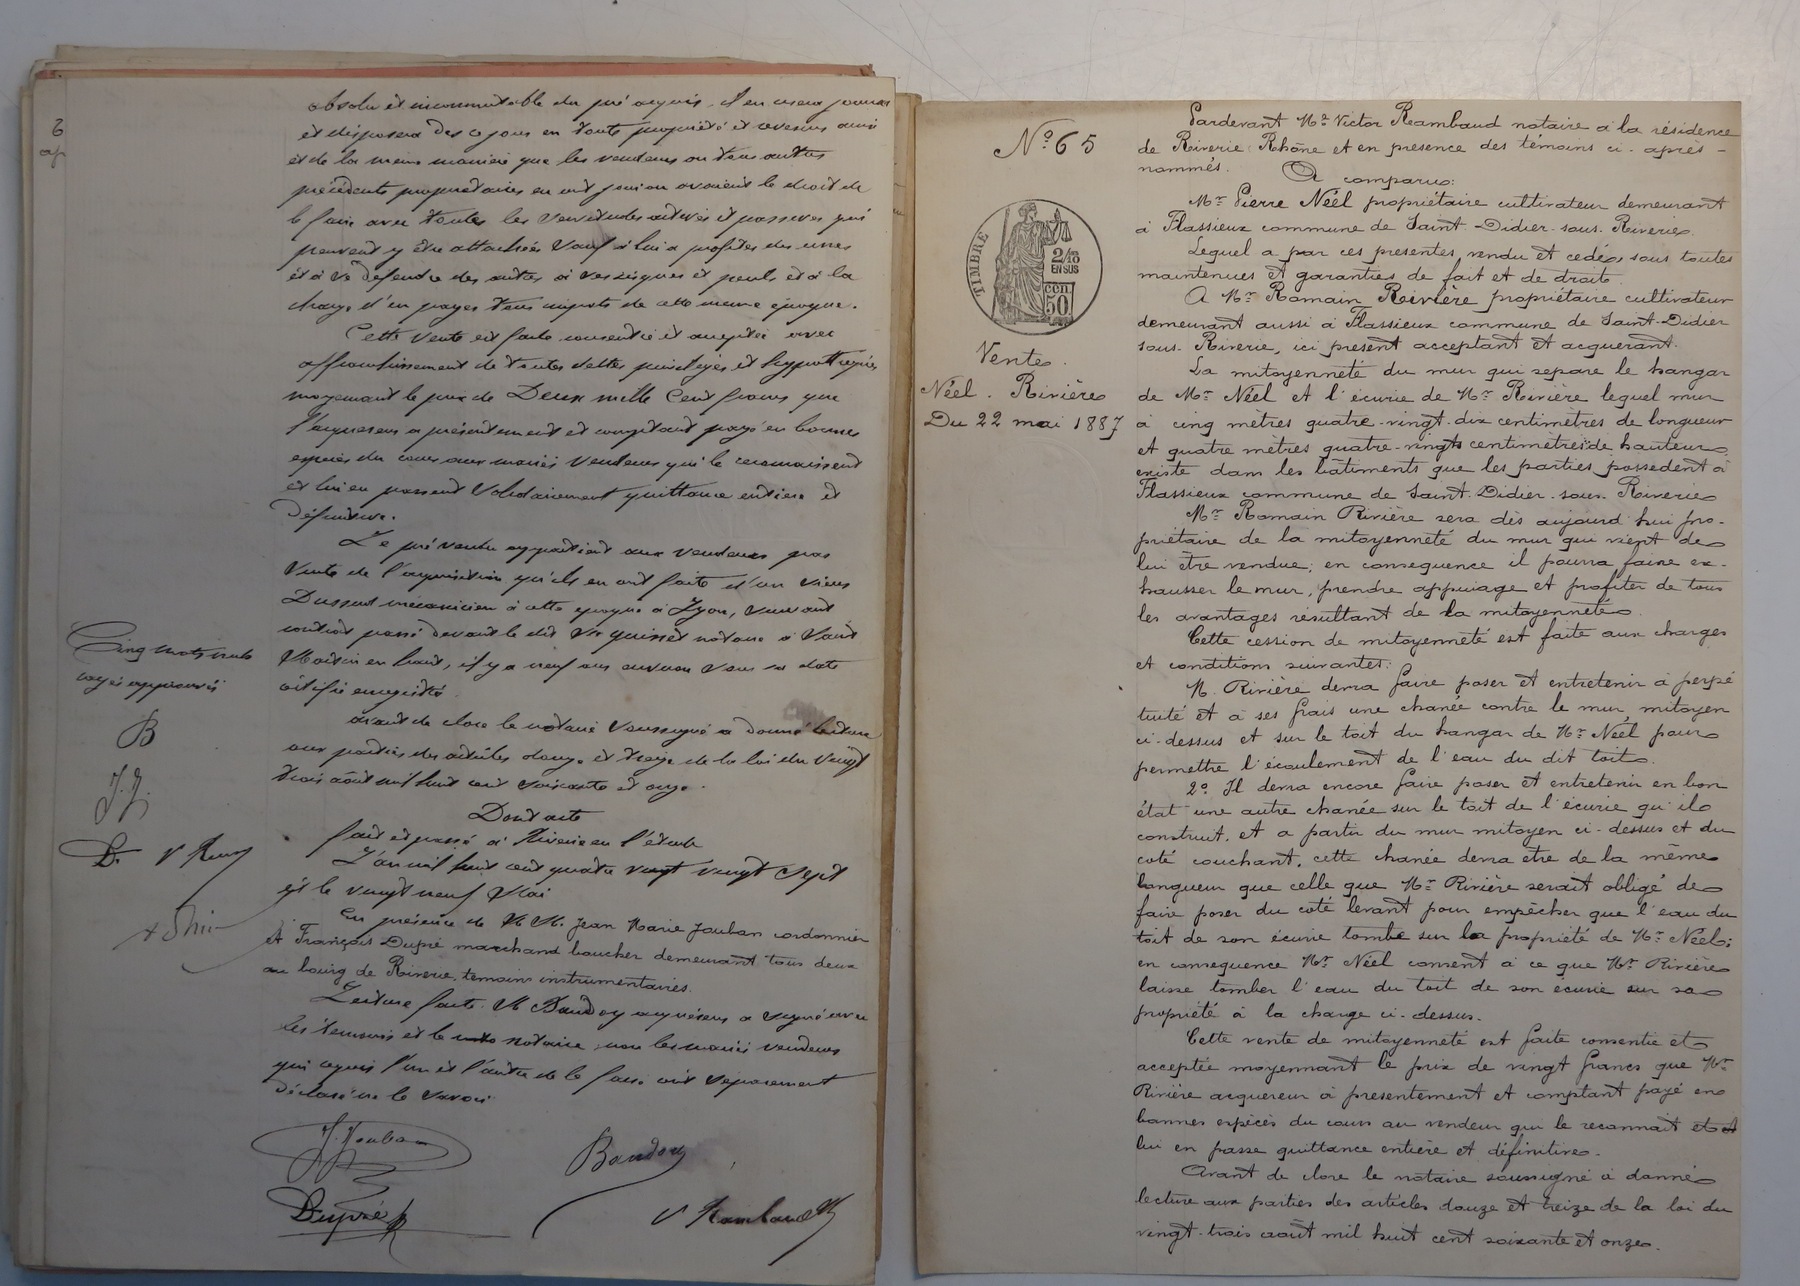 absolu et incommutable du pré acquis, il en usera jouira
et disposera dès ce jour en toute propriété et revenus ainsi
et de la même manière que les vendeurs ou tous autres
précédents propriétaires en ont joui ou avaient le droit de
le faire avec toutes les servitudes actives et passives qui
peuvent y être attachées sauf à lui à profiter des unes
et à se défendre des autres à ses risques et périls et à la
charge d'en payer tous impots de cette meme époque.
Cette vente est faite consentie et acceptée avec
affranchissement de toutes dettes privilèges et hypothèques
moyennant le prix de Deux mille Cent francs que
l'acquereur a présentement et comptant payé en bonnes
espèces du cours aux mariés vendeurs qui le reconnaissent
et lui en passent solidairement quittance entière et
définitive.
Le pré vendu appartient aux vendeurs par
vente de l'acquisition qu'ils en ont faite d'un sieur
Dussurt mécanicien à cette époque à Lyon, suivant
contrat passé devant le dit notaire à Saint
Martin en haut, il y a neuf ans environ sous sa date
enregistré.
Avant de clore le notaire soussigné a donné lecture
aux parties des articles douze et treize de la loi du vingt
trois août mil huit cent soixante et onze.
Dont acte
fait et passé à Riverie en l'étude
L'an mil huit cent quatre vingt sept
et le vingt neuf Mai
En présence de M.M. Jean Marie Jouban cordonnier
et François Dupré marchand boucher demeurant tous deux
au bourg de Riverie, temoins instrumentaires.
Lecture faite. M Baudoy acquéreur a signé avec
les témoins et le notaire, non les mariés vendeurs
qui requis l'un et l'autre de le faire ont séparément
déclaré ne le savoir.
J. Jouban
Baudoy
Dupré
V Rambaud
Cinq mots nuls
rayés approuvés
B
J.J.
D.
No. 65
TIMBRE
2/10
EN SUS
50 cen
Vente
Néel. Rivière
Du 22 mai 1887
Pardevant Me Victor Rambaud notaire à la résidence
de Riverie (Rhône et en presence des témoins ci-après-
nommés. A comparu:
Mr Pierre Néel propriétaire cultivateur demeurant
à Flassieux commune de Saint-Didier-sous-Riverie.
Lequel a par ces presentes vendu et cédé, sous toutes
maintenues et garanties de fait et de droit.
A Mr Romain Rivière propriétaire cultivateur
demeurant aussi à Flassieux commune de Saint-Didier
sous-Riverie, ici présent acceptant et acquerant.
La mitoyenneté du mur qui separe le hangar
de Mr Néel et l'écurie de Mr Rivière lequel mur
à cinq mètres quatre-vingt-dix centimètres de longueur
et quatre mètres quatre-vingts centimètres de hauteur
existe dans les bâtiments que les parties possedent à
Flassieux commune de Saint-Didier-sous-Riverie
Mr Romain Rivière sera dès aujourd'hui pro-
priétaire de la mitoyenneté du mur qui vient de
lui être vendue; en conséquence il pourra faire ex-
hausser le mur, prendre appuiage et profiter de tous
les avantages résultant de la mitoyenneté.
Cette cession de mitoyenneté est faite aux charges
et conditions suivantes:
M. Rivière devra faire poser et entretenir à perpé
tuité et à ses frais une chanée contre le mur, mitoyen
ci-dessus et sur le toit du hangar de Mr Néel pour
permettre l'écoulement de l'eau du dit toit.
2o Il devra encore faire poser et entretenir en bon
état une autre chanée sur le toit de l'écurie qu'il
construit, et a partir du mur mitoyen ci-dessus et du
coté couchant, cette chanée devra etre de la même
longueur que celle que Mr Rivière serait obligé de
faire poser du coté levant pour empêcher que l'eau du
toit de son écurie tombe sur la propriété de Mr Néel;
en conséquence Mr Néel consent à ce que Mr Rivière
laisse tomber l'eau du toit de son écurie sur sa
propriété à la charge ci-dessus.
Cette vente de mitoyenneté est faite consentie et
acceptée moyennant le prix de vingt francs que Mr
Rivière acquereur à présentement et comptant payé en
bonnes espèces du cours au vendeur qui le reconnait et
lui en passe quittance entière et définitive.
Avant de clore le notaire soussigné à donné
lecture aux parties des articles douze et treize de la loi du
vingt-trois août mil huit cent soixante et onze.